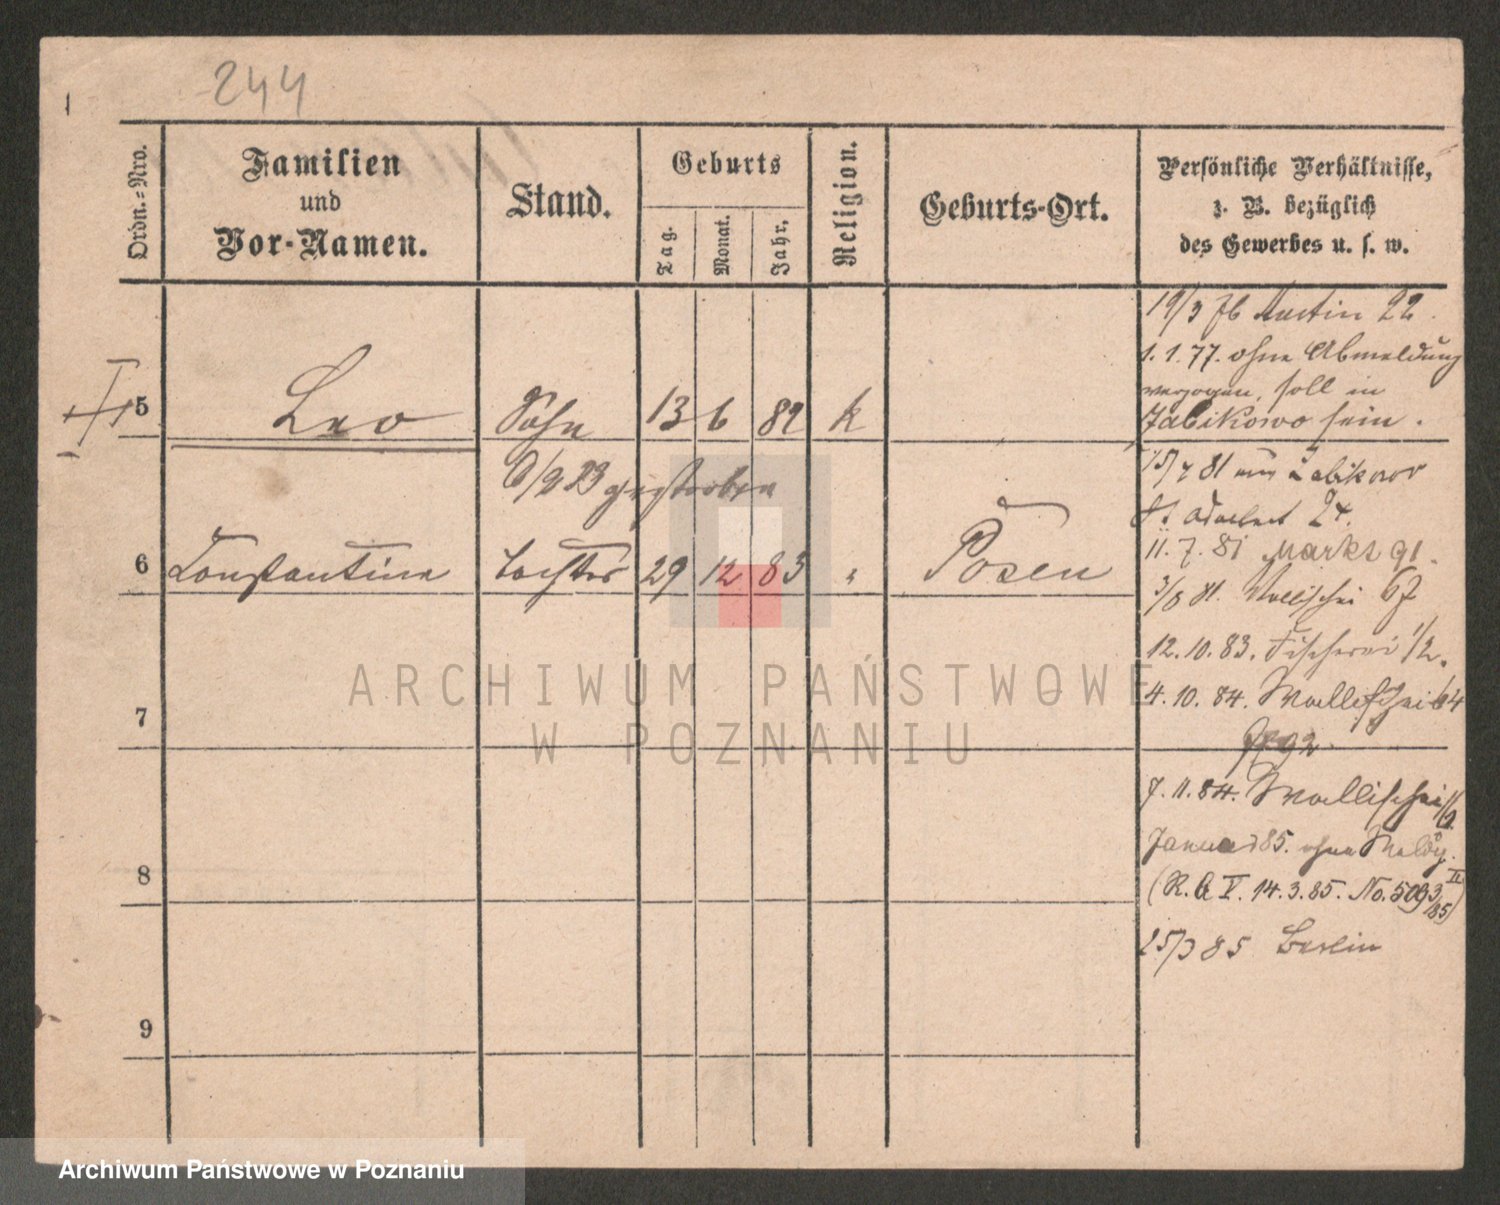 244
Ordn.-Nro.
Familien
und
Vor-Namen.
Stand.
Geburts
Tag.
Monat.
Jahr.
Religion.
Geburts-Ort.
Persönliche Verhältnisse,
z. B. bezüglich
des Gewerbes u. s. w.
5 Leo Sohn 13 6 82 k
gestorben
6 Constantine Tochter 29 12 83 " Posen
7
8
9
19/3 76 Martin 22.
1.1.77. ohne Abmeldung
verzogen, soll in
Zabikowo sein.
15/7 81 aus Zabikowo
St. Adalbert 24.
11.7.81 Markt 91.
3/8 81. Wallischei 67
12.10.83. Fischerei 1/2.
4.10.84. Wallischei 64
92.
7.11.84. Wallischei 1/2.
Januar 85. ohne Meldg.
(R. A V. 14.3.85. No. 5093/85 II)
25/3 85 Berlin
ARCHIWUM PAŃSTWOWE
W POZNANIU
Archiwum Państwowe w Poznaniu